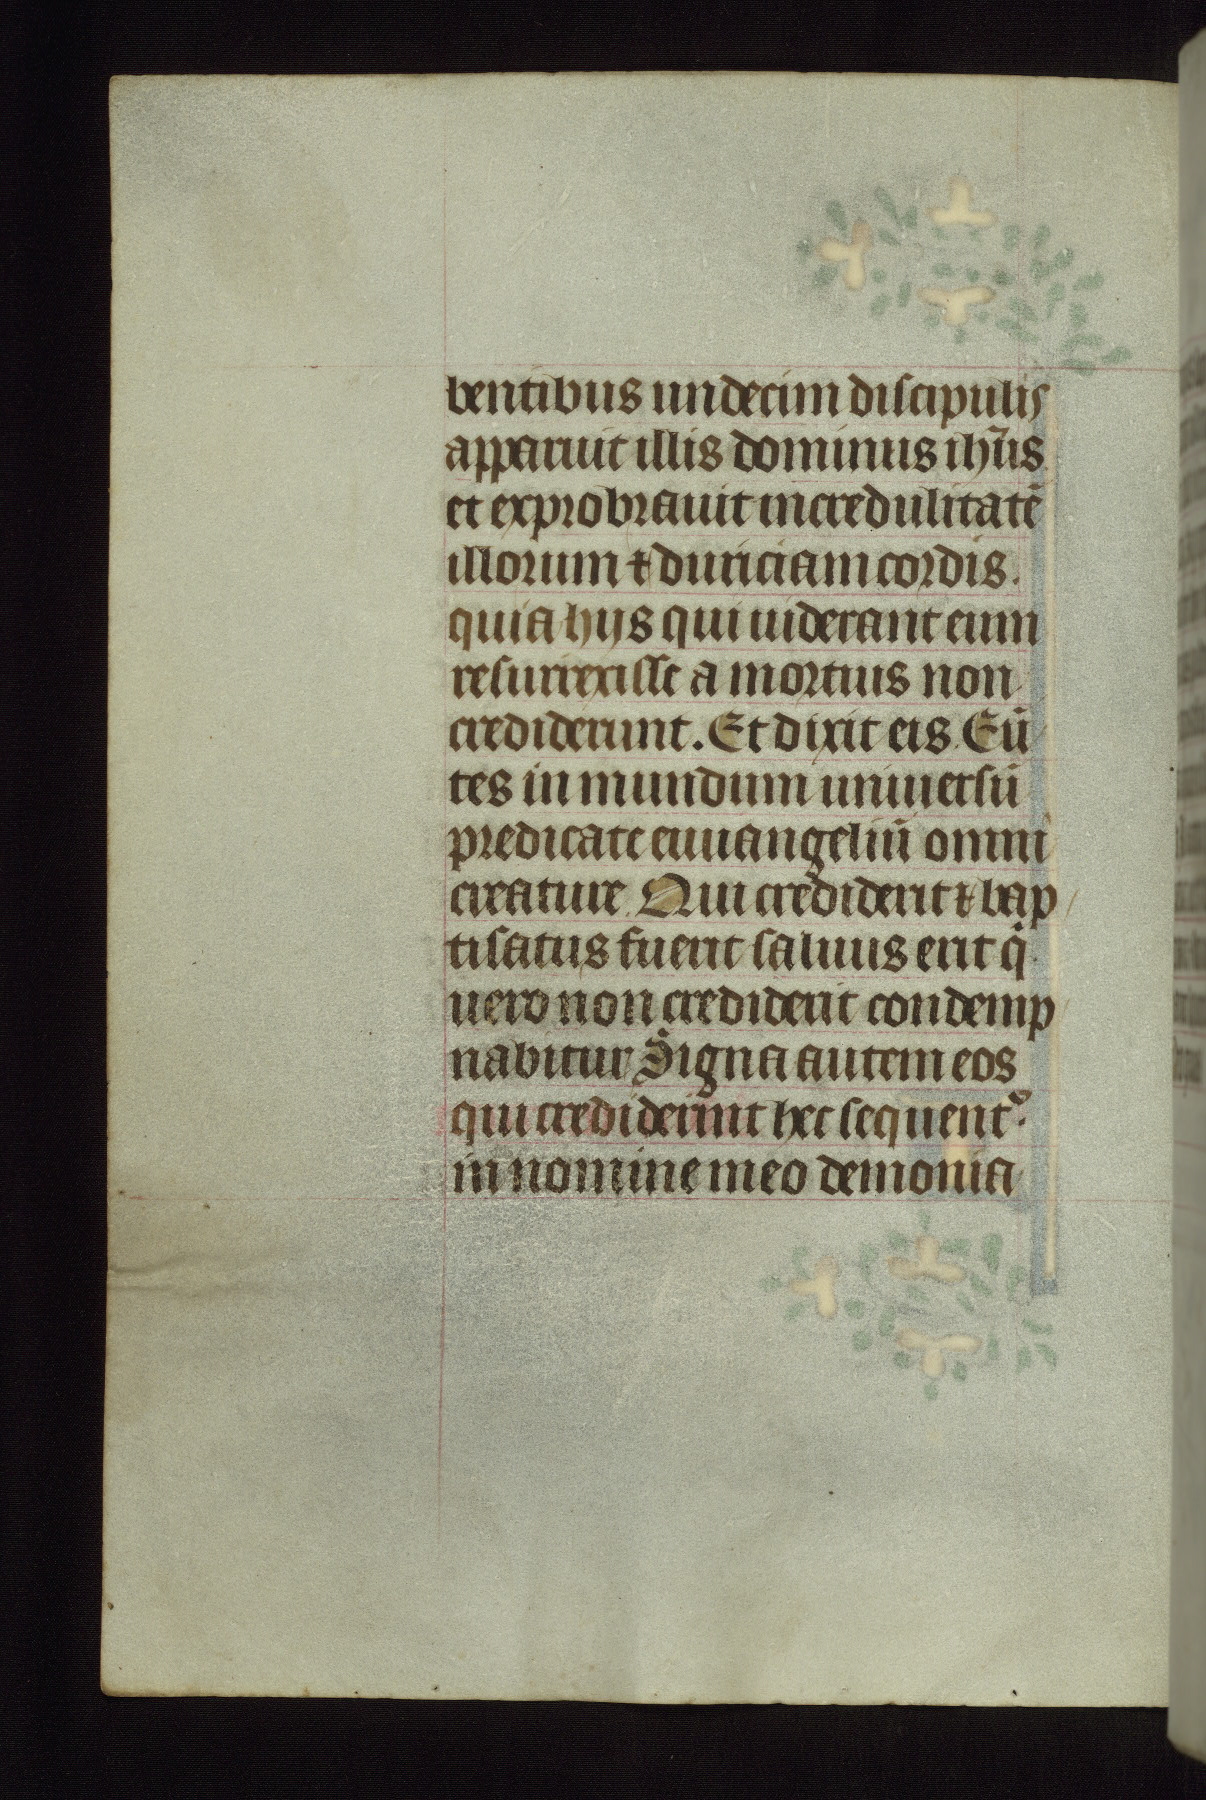 bentibus undecim discipulis
apparuit illis dominus ih̄us
et exprobrauit incredulitatē
illorum ⁊ duriciam cordis.
quia hijs qui uiderant eum
resurrexisse a mortuis non
crediderunt. Et dixit eis. Eū
tes in mundum uniuersū
predicate euuangeliū omni
creature. Qui crediderit ⁊ bap
tisatus fuerit saluus erit qͥ
uero non crediderit condemp
nabitur. Signa autem eos
qui crediderint hec sequentᷣ.
in nomine meo demonia